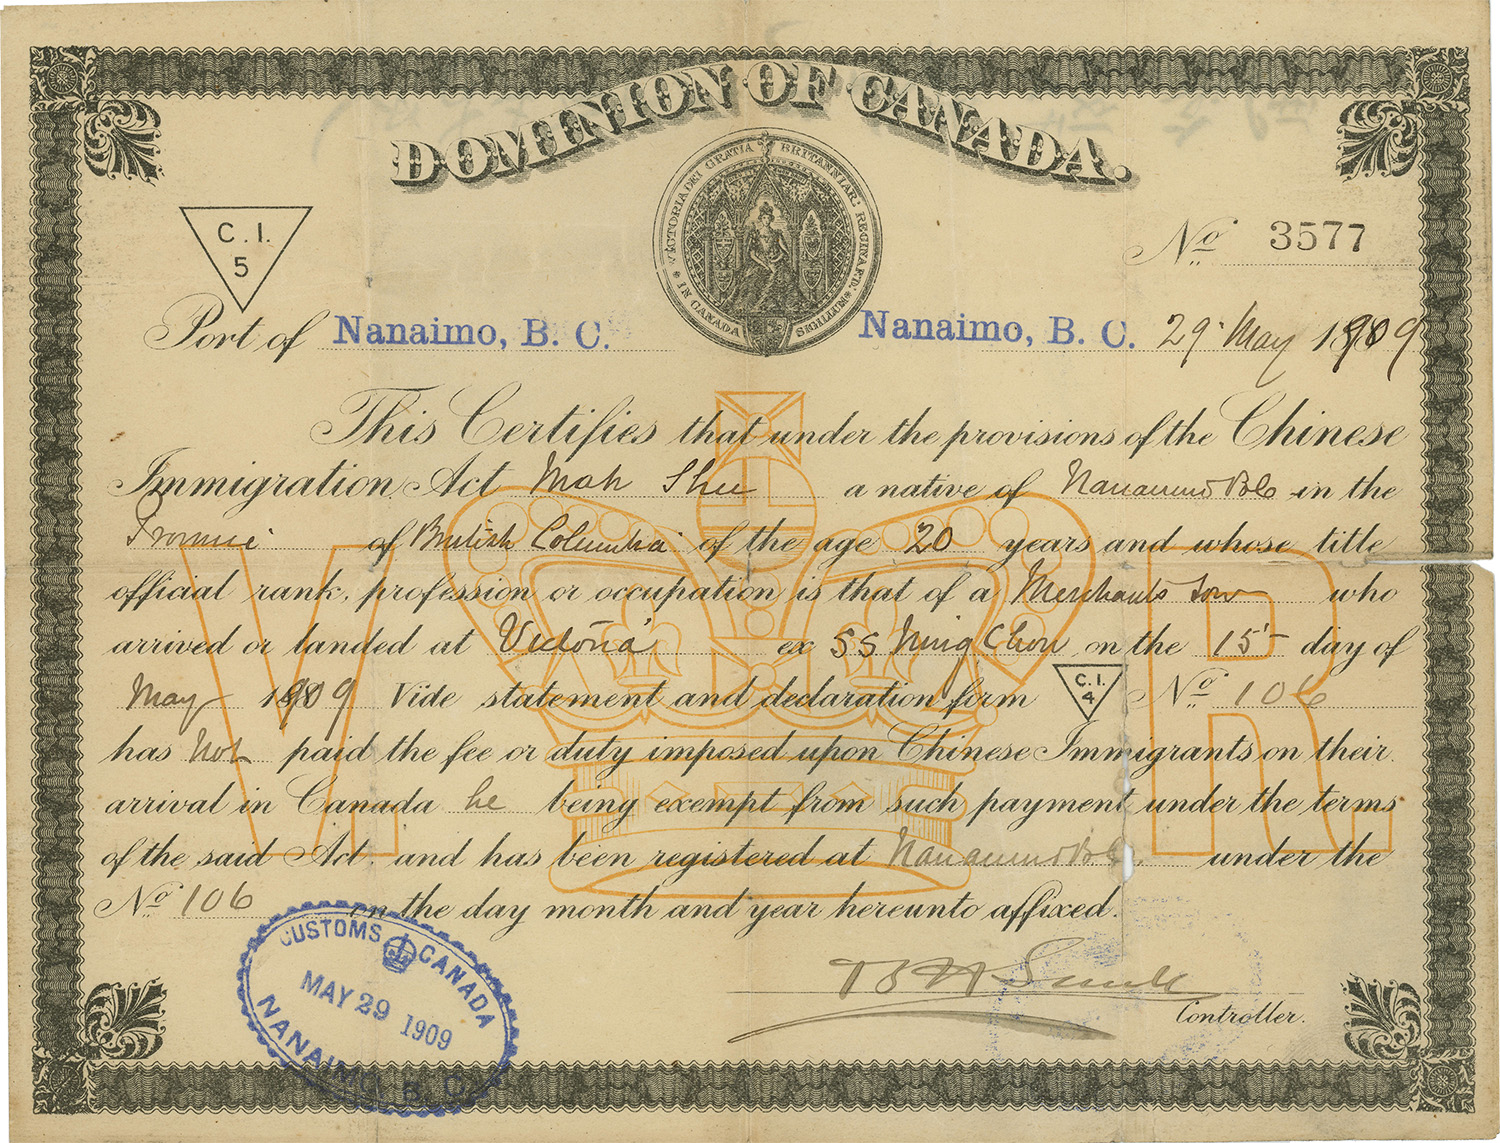 DOMINION OF CANADA.
VICTORIA DEI GRATIA BRITANNIAR: REGINA F.D. IN CANADA SIGILLUM
C. I.
5
No 3577
Port of Nanaimo, B. C.
Nanaimo, B. C. 29 May 1909
This Certifies that under the provisions of the Chinese
Immigration Act Mah Shu a native of Nanaimo BC in the
Province of British Columbia of the age 20 years and whose title
official rank, profession or occupation is that of a Merchants Son who
arrived or landed at Victoria ex SS Ning Chow on the 15 day of
May 1909 Vide statement and declaration form C.I. 4 No 106
has Not paid the fee or duty imposed upon Chinese Immigrants on their
arrival in Canada he being exempt from such payment under the terms
of the said Act. and has been registered at Nanaimo BC under the
No 106 on the day month and year hereunto affixed.
V R
CUSTOMS CANADA
MAY 29 1909
NANAIMO B. C.
Smith
Controller.